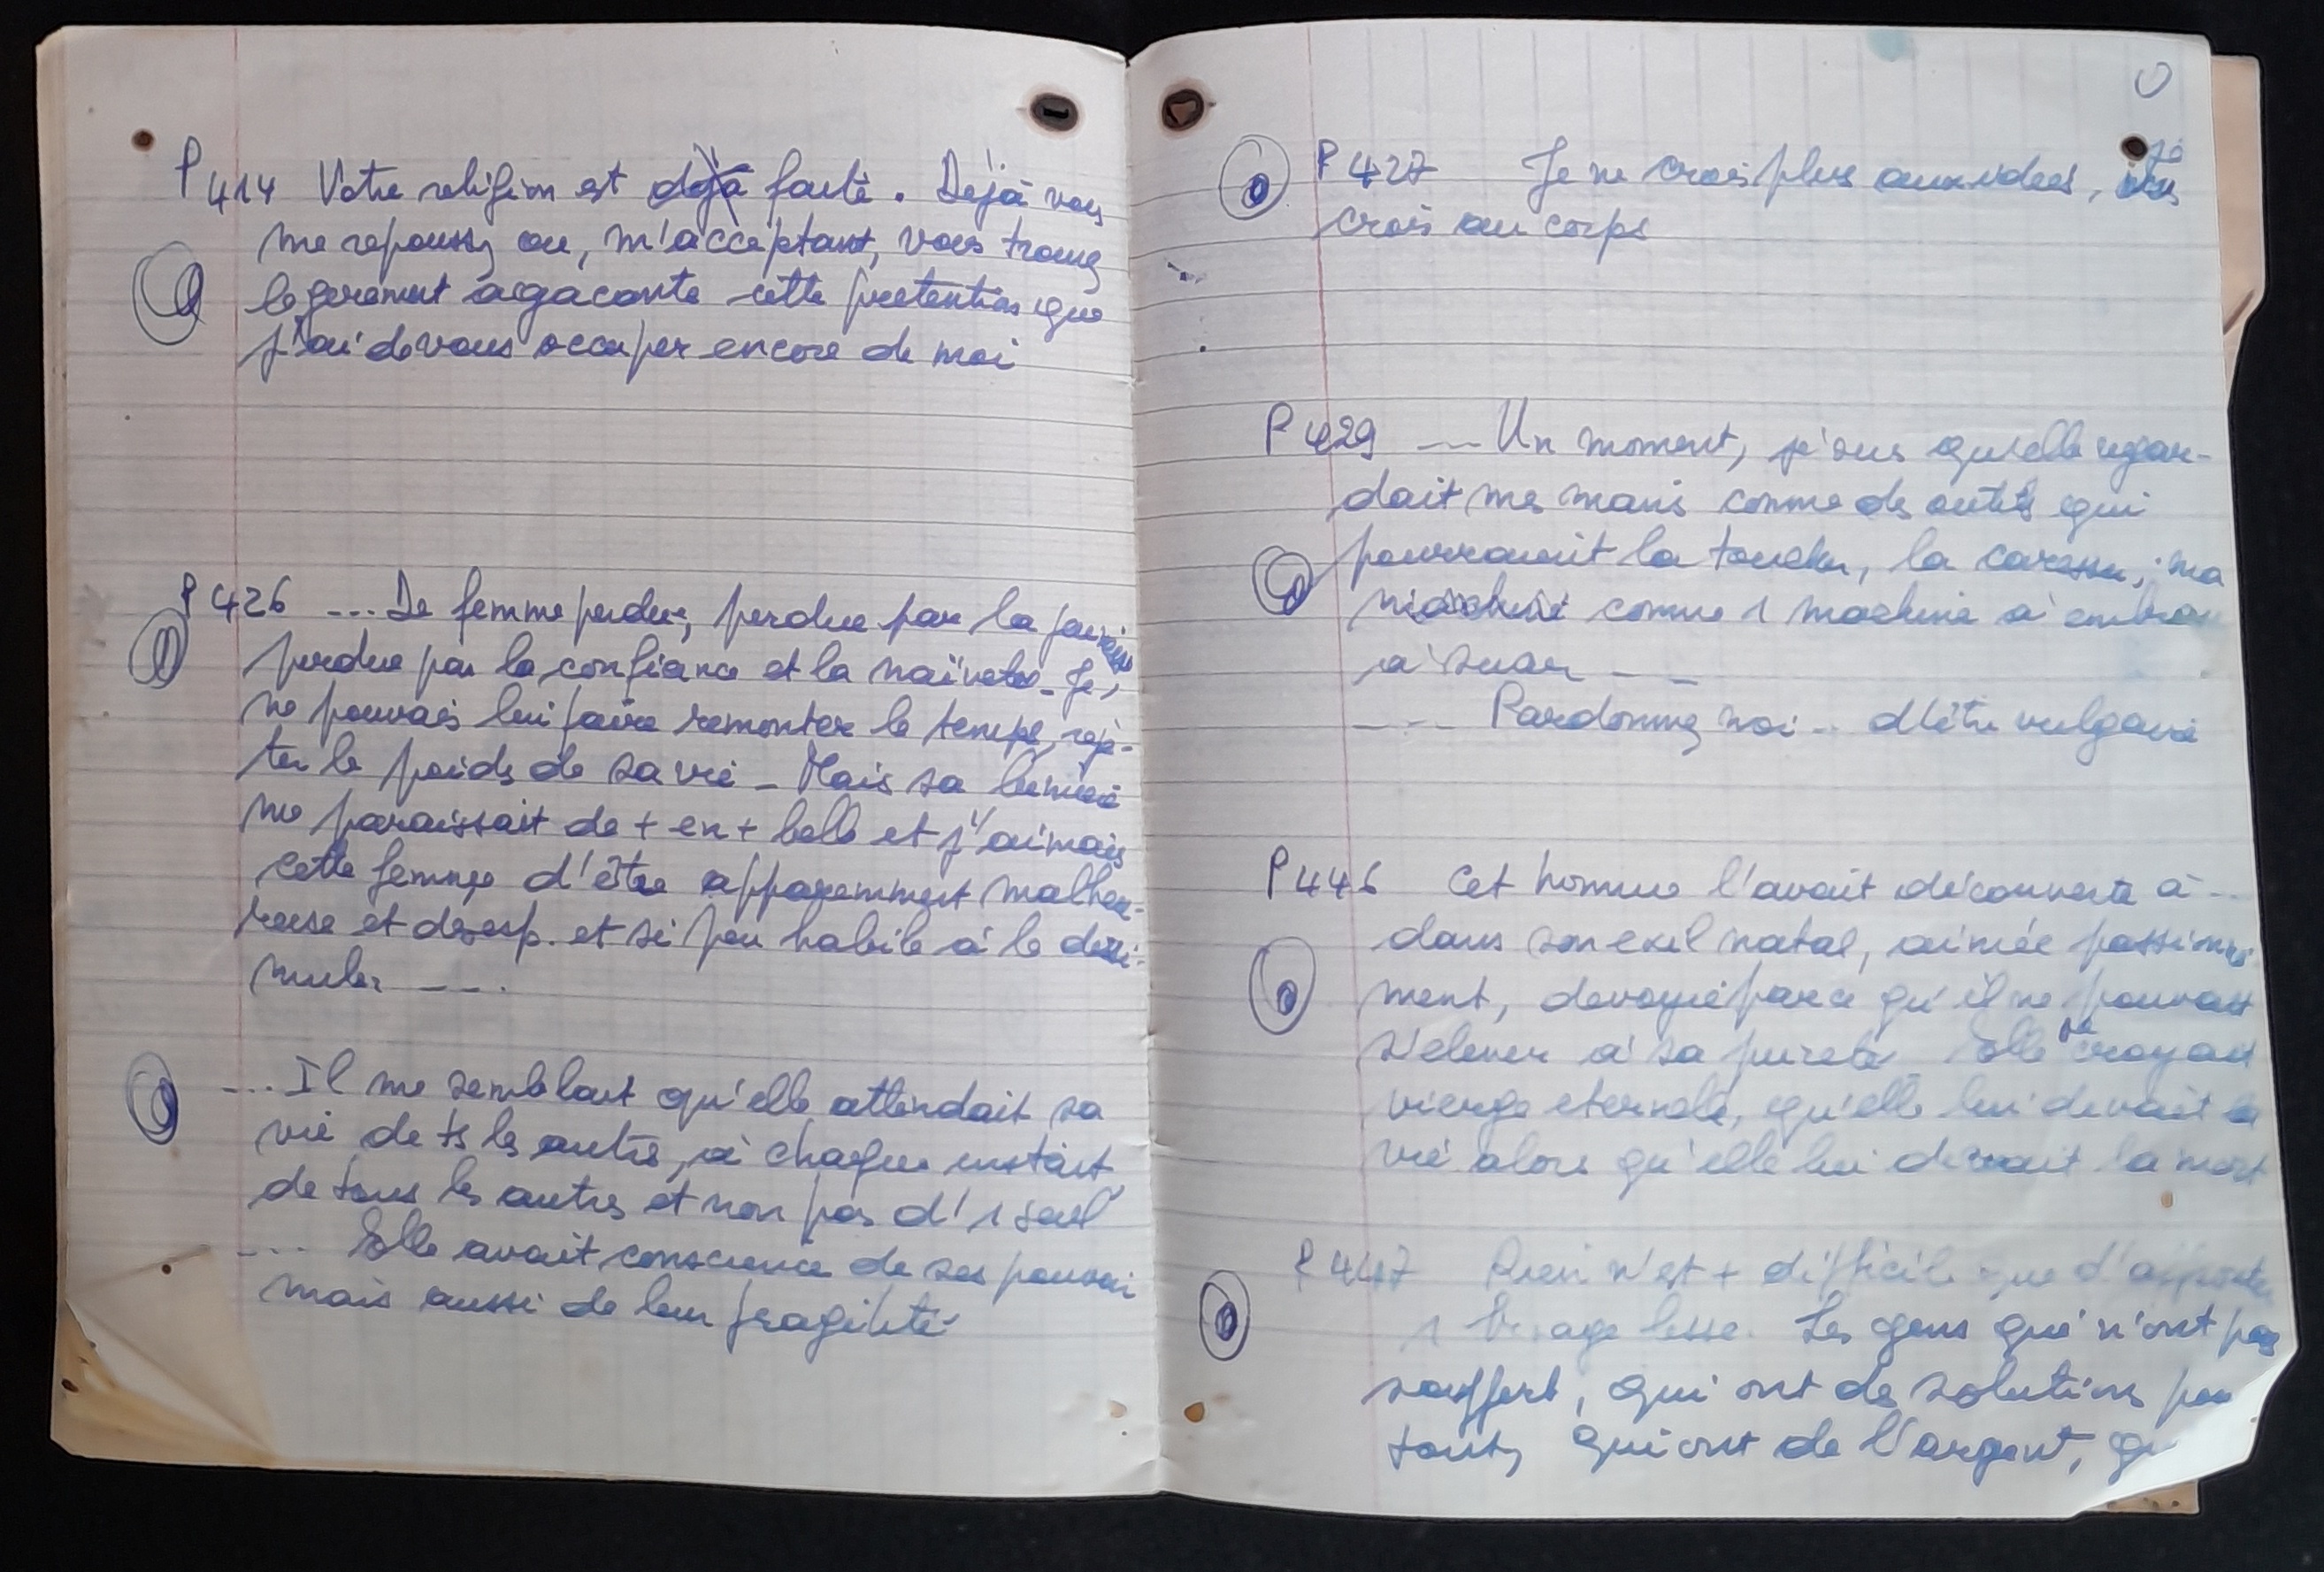 P 414 Votre religion est déjà faite. Déjà vous
me repoussez ou, m'acceptant, vous trouvez
legerement agaçante cette pretention que
j'ai de vous occuper encore de moi
P 426 ... De femme perdue, perdue par la
perdue par la confiance et la naïveté _ Je
ne pouvais lui faire remonter le temps, reje-
ter le poids de sa vie _ Mais sa lumière
me paraissait de + en + belle et j'aimais
cette femme d'être apparemment malheu-
reuse et desesp. et si peu habile à le dissi-
muler ___.
... Il me semblait qu'elle attendait sa
vie de ts les autres, à chaque instant
de tous les autres et non pas d'1 seul
... Elle avait conscience de ses pouvoirs
mais aussi de leur fragilité
P 427 Je ne crois plus aux idées, je
crois au corps
P 429 ___ Un moment, je sus qu'elle regar-
dait mes mains comme des outils qui
pourraient la toucher, la caresser, ma
comme 1 machine à
à suer ___
___ Pardonnez moi .. d'être vulgaire
P 446 Cet homme l'avait découverte à ..
dans son exil natal, aimée passionné
ment, devoyée parce qu'il ne pouvait
s'elever à sa pureté _ Elle se croyait
vierge eternelle, qu'elle lui devait la
vie alors qu'elle lui devait la mort
P 447 Rien n'est + difficile que d'affronter
1 visage lisse. Les gens qui n'ont pas
souffert, qui ont des solutions pour
tout, qui ont de l'argent, qu